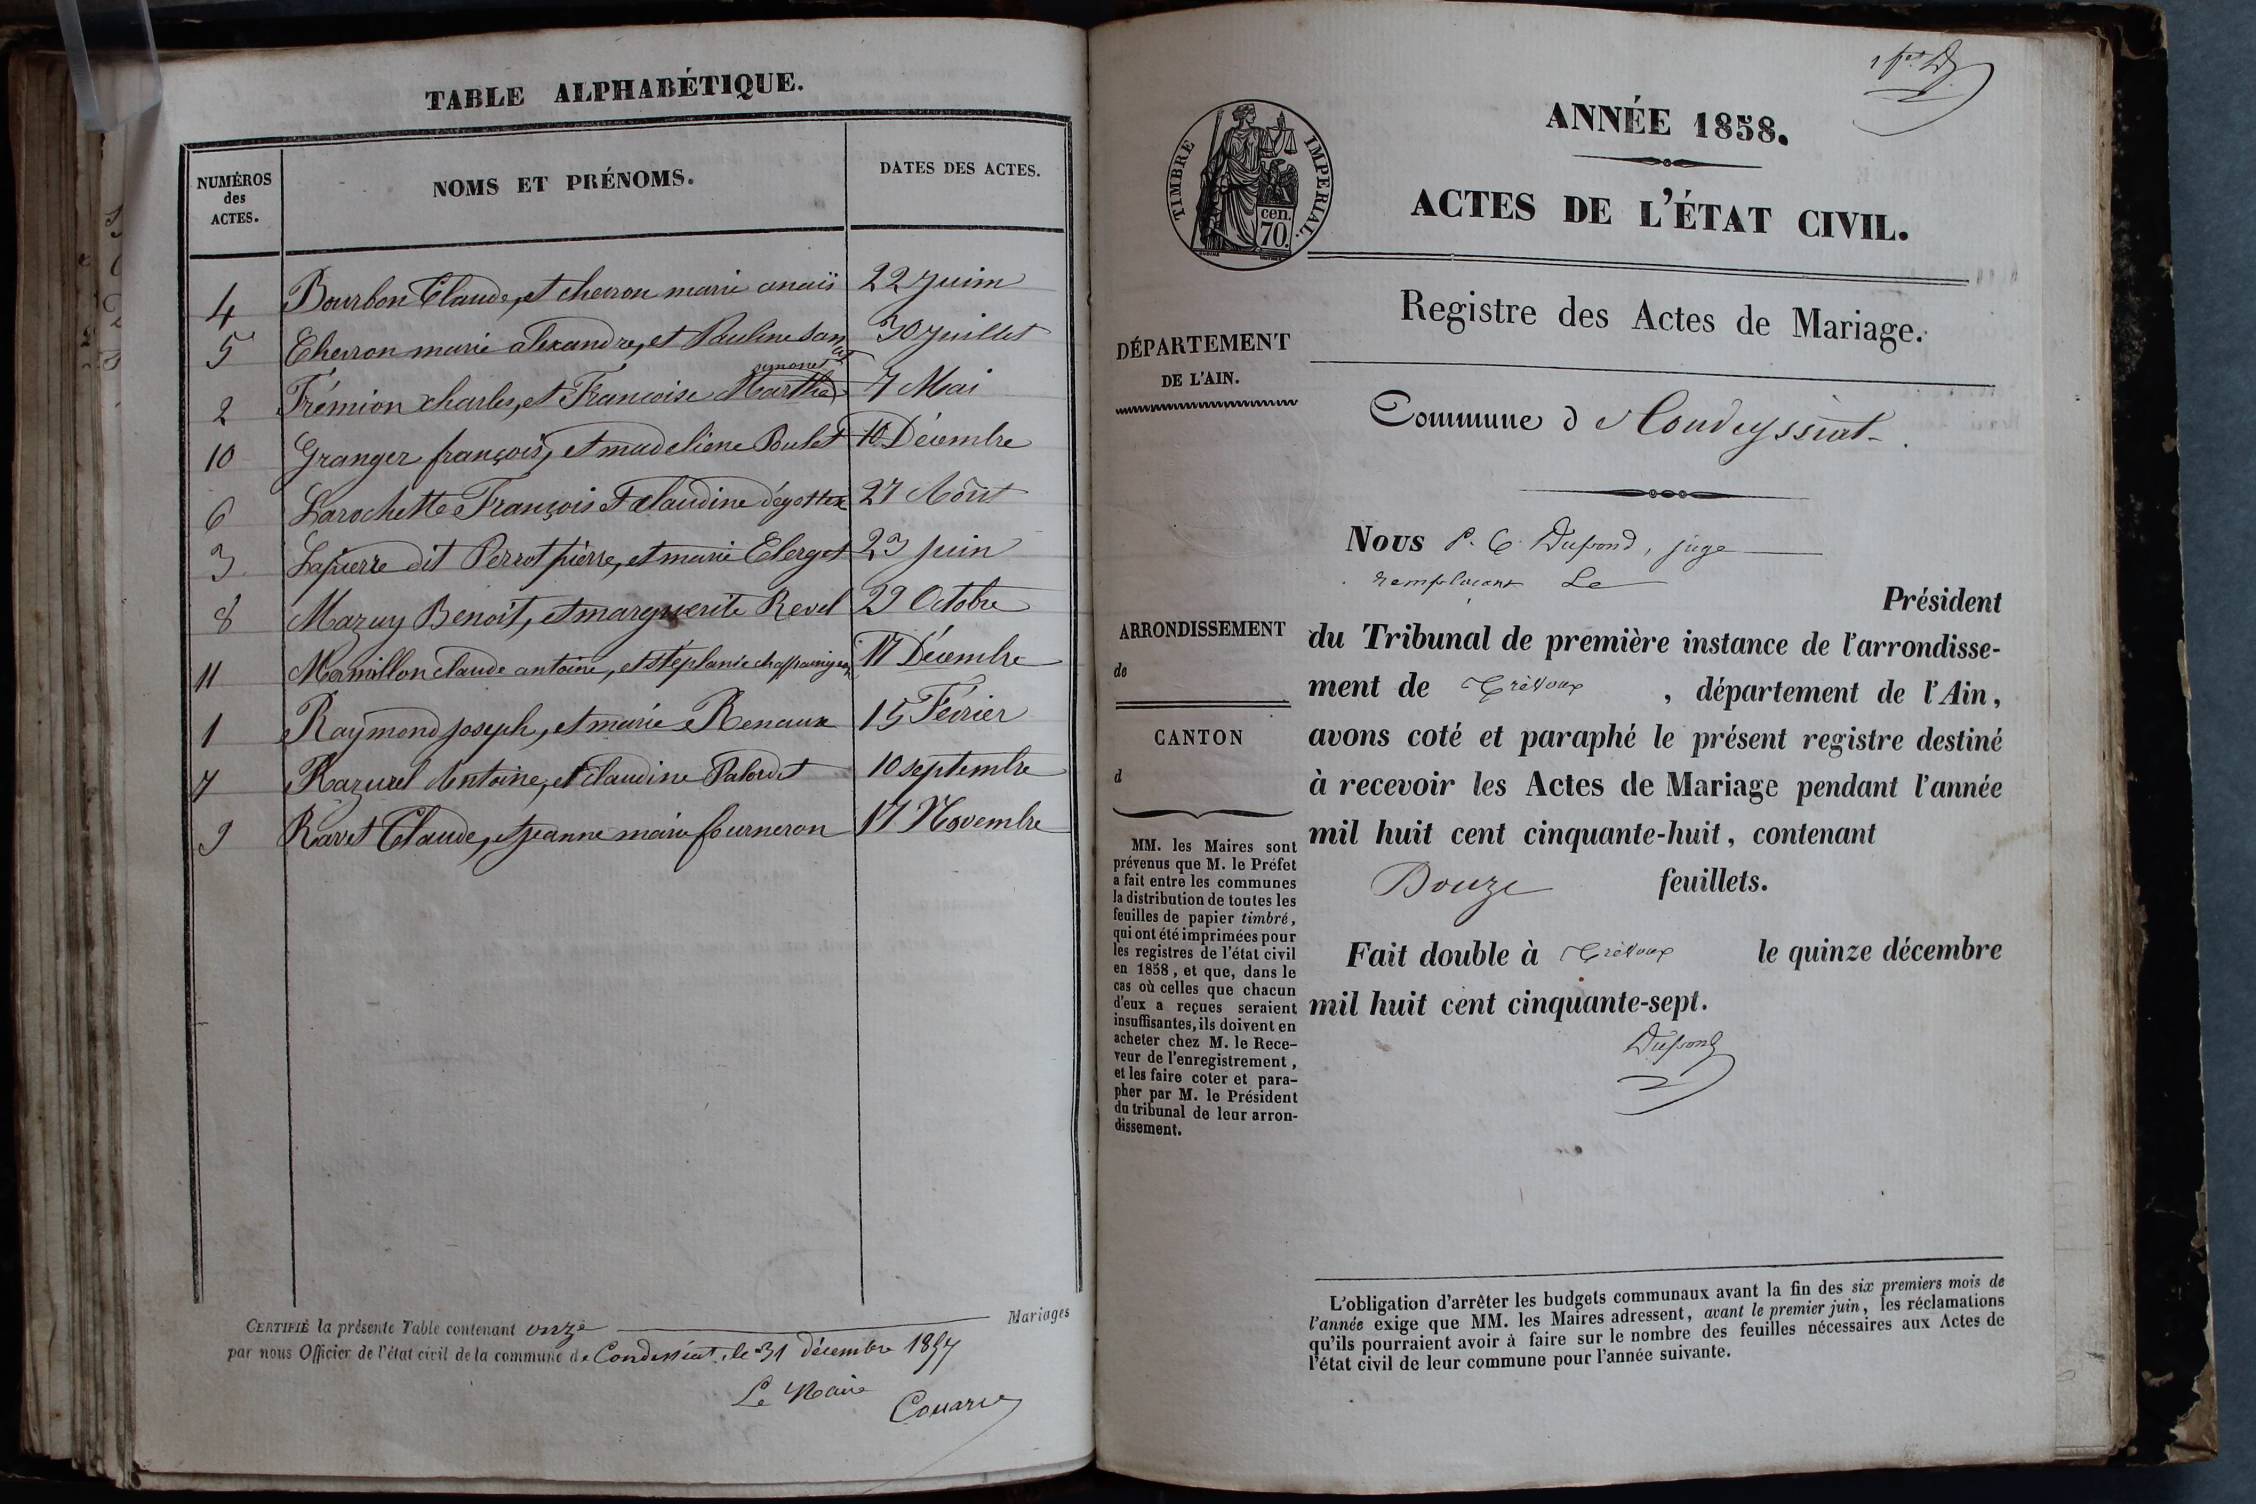 TABLE ALPHABÉTIQUE.
NUMÉROS
des
ACTES.
NOMS ET PRÉNOMS.
DATES DES ACTES.
4 Bourbon Claude, et cherron marie anaïs 22 juin
5 Cherron marie alexandre, et Pauline 30 juillet
simonet
2 Frémion charles, et Francoise Marthe 7 Mai
10 Granger françois, et madeliene Poulet 10 Décembre
6 Larochette François et claudine dégottex 27 Août
3 Lapierre dit Perrot pierre, et marie Clerget 23 juin
8 Mazuy Benoit, et marguerite Revel 29 Octobre
11 Mormillon claude antoine, et stéplanie 17 Décembre
1 Raymond joseph, et marie Renaux 15 Février
7 Razurel Antoine, et claudine Palordet 10 septembre
9 Ravet Claude, et jeanne marie fourneron 17 Novembre
CERTIFIÉ la présente Table contenant onze Mariages
par nous Officier de l'état civil de la commune de Condeissiat, le 31 décembre 1857
Le Maire
TIMBRE IMPERIAL.
cen.
70.
ANNÉE 1858.
ACTES DE L'ÉTAT CIVIL.
Registre des Actes de Mariage.
DÉPARTEMENT
DE L'AIN.
Commune d Condeyssiat
Nous P. C. Dupond, juge
remplaçant Le
Président
du Tribunal de première instance de l'arrondisse-
ment de Trévoux, département de l'Ain,
avons coté et paraphé le présent registre destiné
à recevoir les Actes de Mariage pendant l'année
mil huit cent cinquante-huit, contenant
Douze feuillets.
Fait double à Trévoux le quinze décembre
mil huit cent cinquante-sept.
Dupond
ARRONDISSEMENT
de
CANTON
d
MM. les Maires sont
prévenus que M. le Préfet
a fait entre les communes
la distribution de toutes les
feuilles de papier timbré,
qui ont été imprimées pour
les registres de l'état civil
en 1858, et que, dans le
cas où celles que chacun
d'eux a reçues seraient
insuffisantes, ils doivent en
acheter chez M. le Rece-
veur de l'enregistrement,
et les faire coter et para-
pher par M. le Président
du tribunal de leur arron-
dissement.
L'obligation d'arrêter les budgets communaux avant la fin des six premiers mois de
l'année exige que MM. les Maires adressent, avant le premier juin, les réclamations
qu'ils pourraient avoir à faire sur le nombre des feuilles nécessaires aux Actes de
l'état civil de leur commune pour l'année suivante.